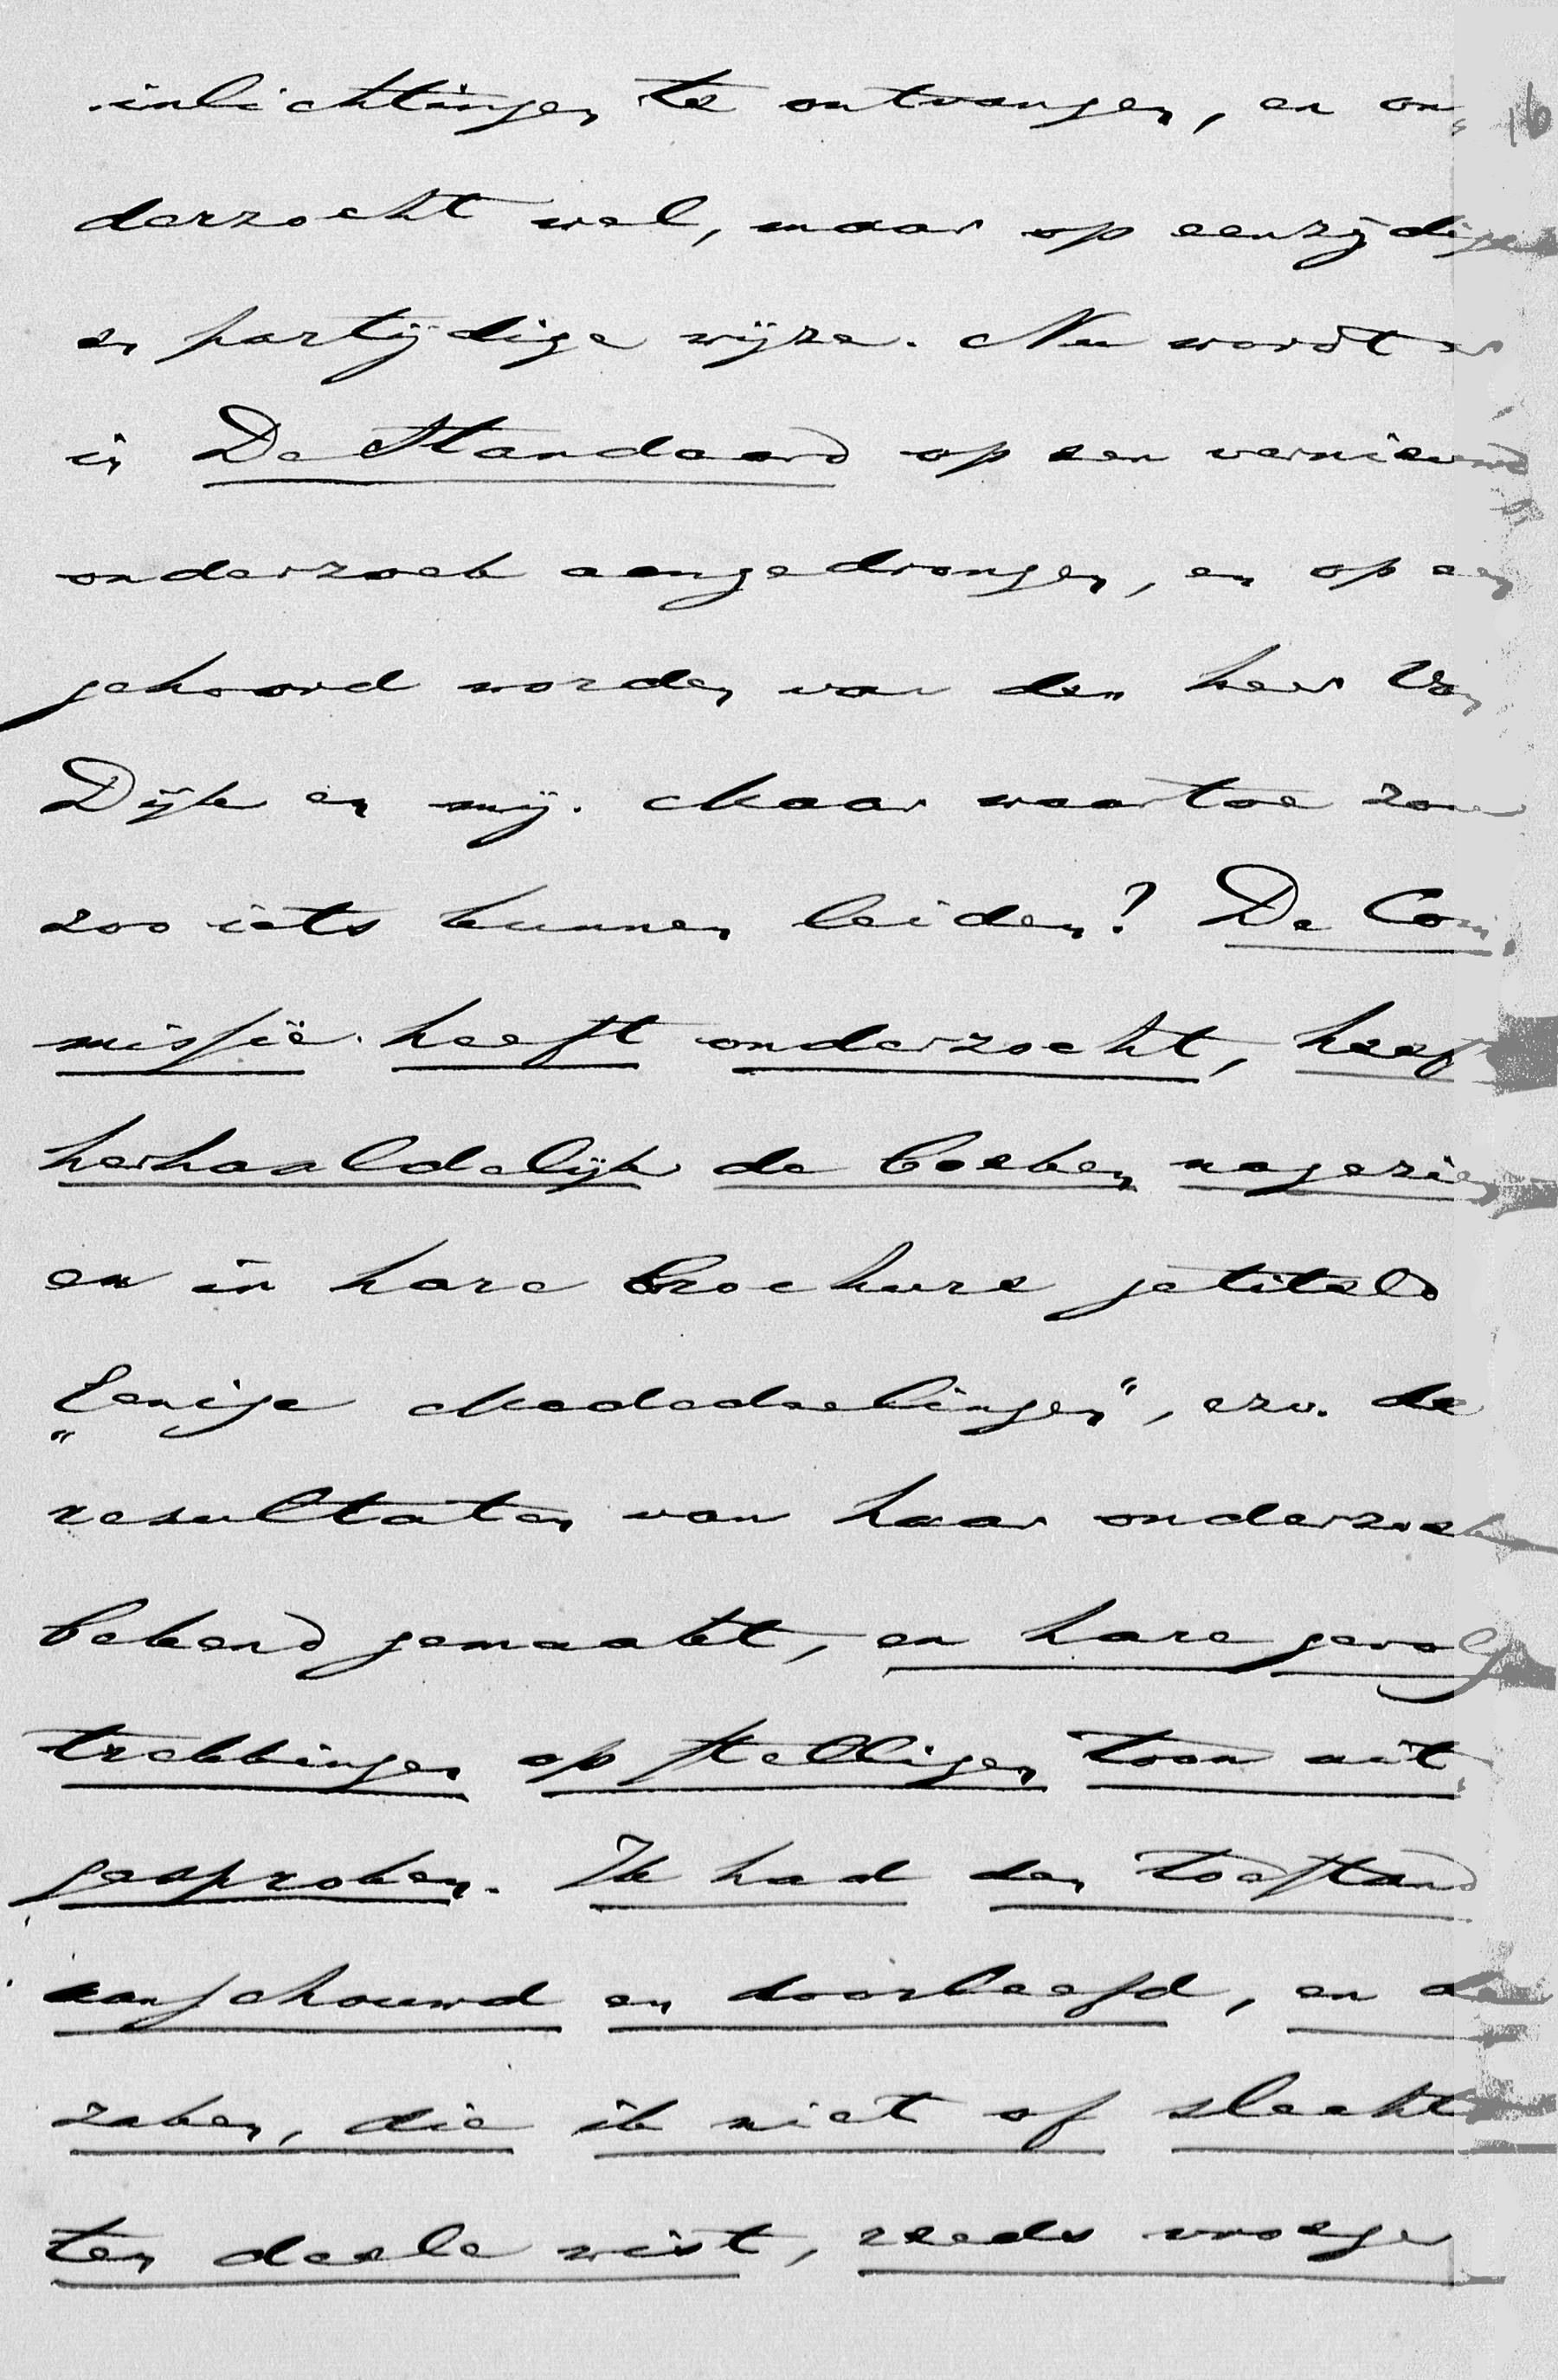 inlichtingen te ontvangen, en on- 16
derzocht wel, maar op eenzijdige
en partijdige wijze. Nu wordt er
in De Standaard op een vernieuwd
onderzoek aangedrongen, en op een
gehoord worden van den heer Van
Dijk en mij. Maar waartoe zou
zoo iets kunnen leiden? De Com-
missie heeft onderzocht, heeft
herhaaldelijk de boeken nagezien
en in hare brochure getiteld
"Eenige Mededeelingen", ezv. de
resultaten van haar onderzoek
bekend gemaakt, en hare gevolg
trekkingen op stelligen toon uit-
gesproken. Ik had den toestand
aanschouwd en doorleefd, en de
zaken, die ik niet of slecht
ten deele wist, reeds vroeger